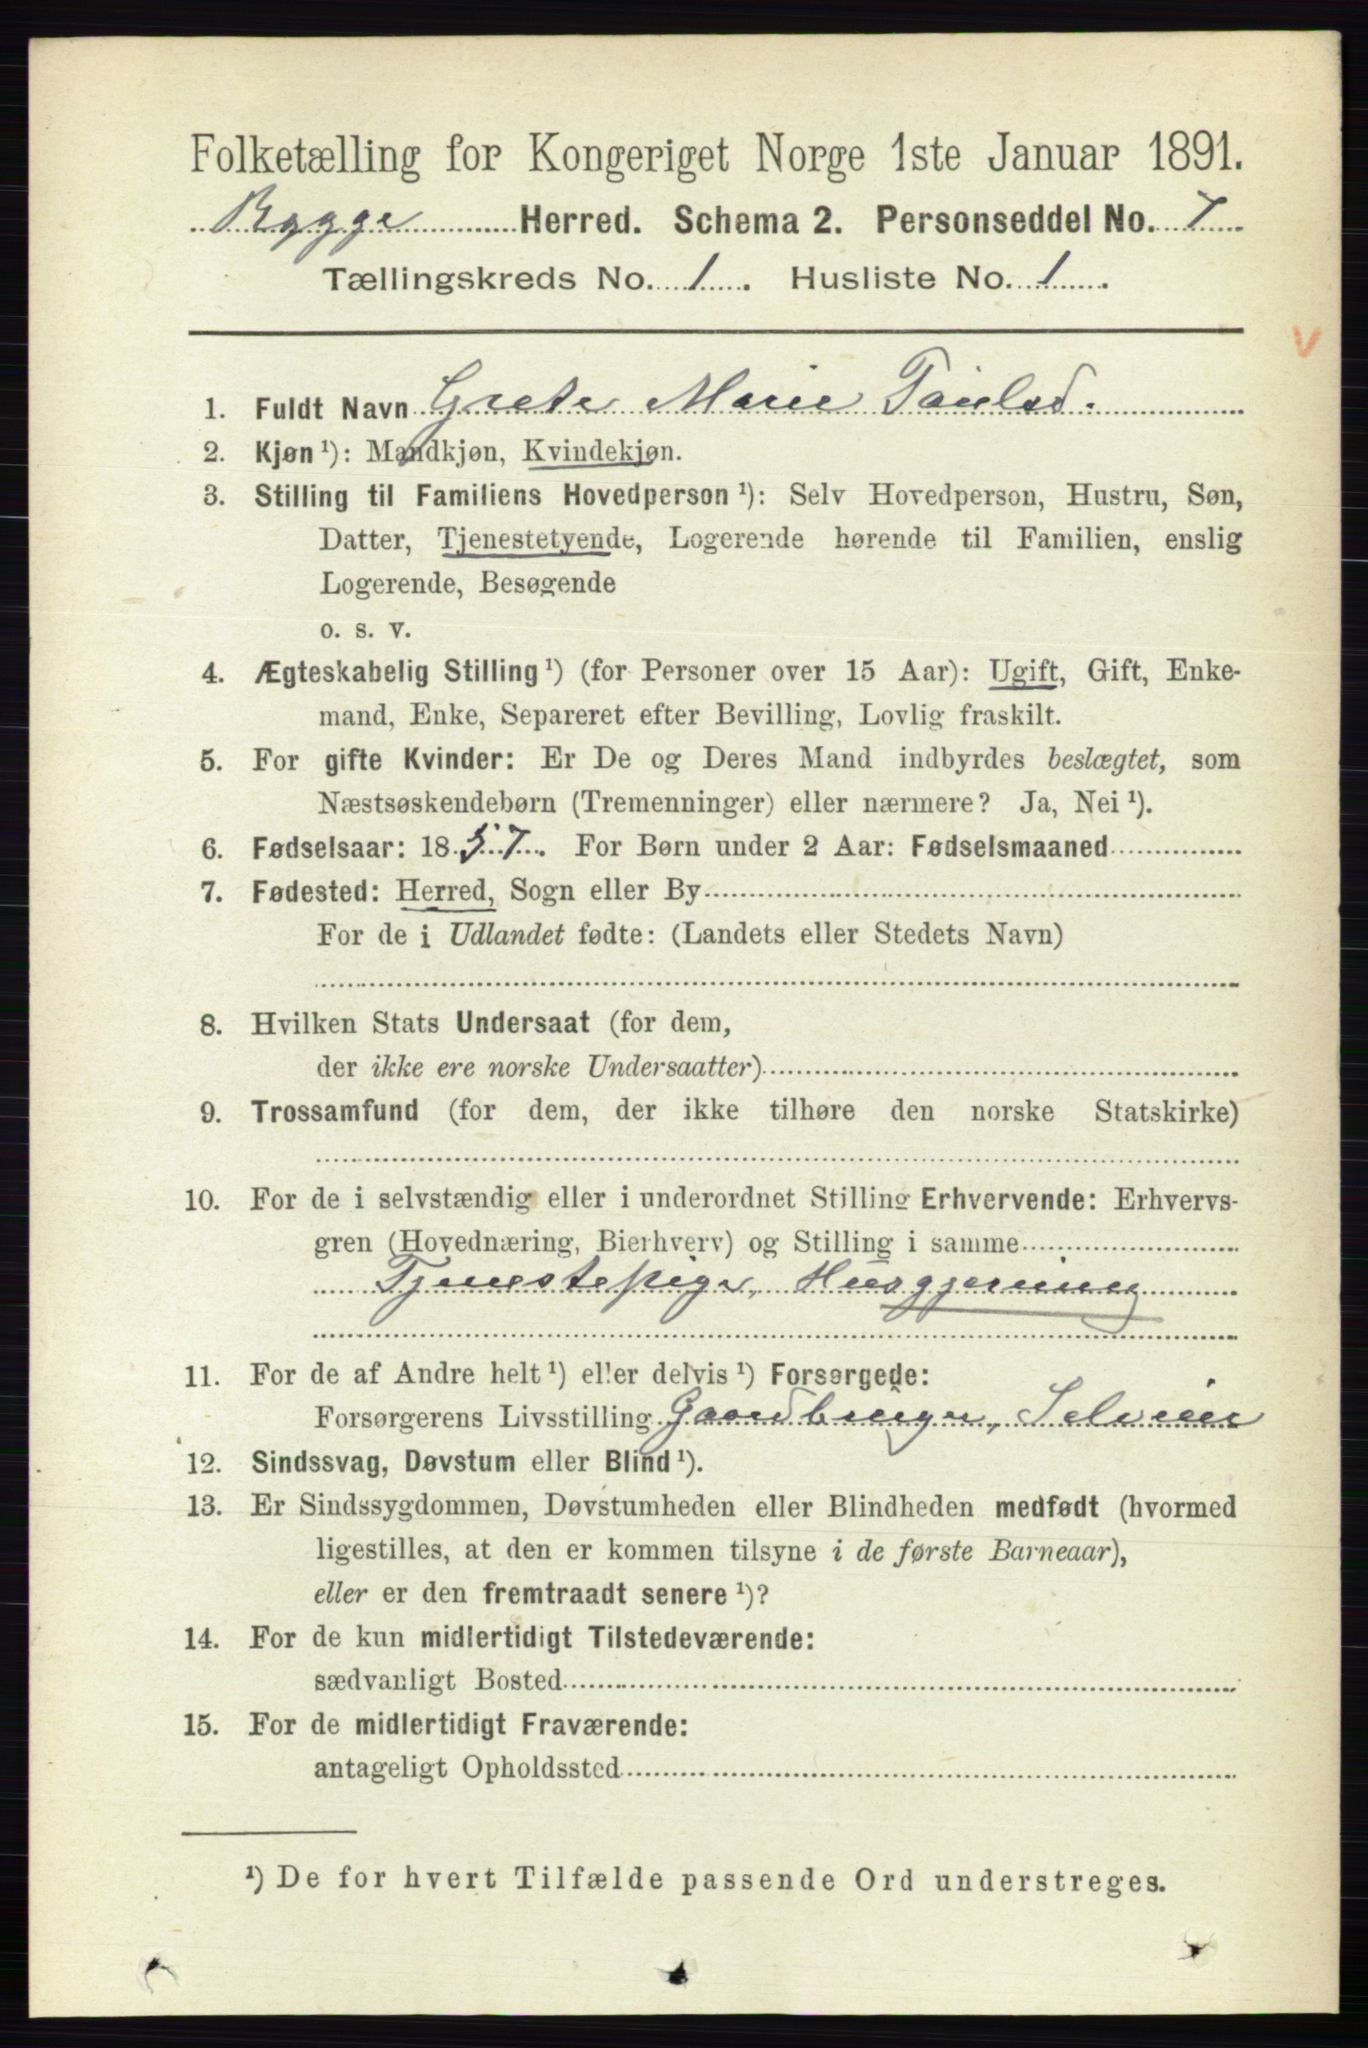 Folketælling for Kongeriget Norge 1ste Januar 1891.
Rygge Herred. Schema 2. Personseddel No. 7
Tællingskreds No. 1. Husliste No. 1.
v
1. Fuldt Navn Grete Marie Paulsd.
2. Kjøn ¹): Mandkjøn, Kvindekjøn.
3. Stilling til Familiens Hovedperson ¹): Selv Hovedperson, Hustru, Søn,
Datter, Tjenestetyende, Logerende hørende til Familien, enslig
Logerende, Besøgende
o. s. v.
4. Ægteskabelig Stilling ¹) (for Personer over 15 Aar): Ugift, Gift, Enke-
mand, Enke, Separeret efter Bevilling, Lovlig fraskilt.
5. For gifte Kvinder: Er De og Deres Mand indbyrdes beslægtet, som
Næstsøskendebørn (Tremenninger) eller nærmere? Ja, Nei ¹).
6. Fødselsaar: 1857. For Børn under 2 Aar: Fødselsmaaned
7. Fødested: Herred, Sogn eller By
For de i Udlandet fødte: (Landets eller Stedets Navn)
8. Hvilken Stats Undersaat (for dem,
der ikke ere norske Undersaatter)
9. Trossamfund (for dem, der ikke tilhøre den norske Statskirke)
10. For de i selvstændig eller i underordnet Stilling Erhvervende: Erhvervs-
gren (Hovednæring, Bierhverv) og Stilling i samme
Tjenestepige, Husgjerning
11. For de af Andre helt ¹) eller delvis ¹) Forsørgede:
Forsørgerens Livsstilling Gaardbruger, Selveier
12. Sindssvag, Døvstum eller Blind ¹).
13. Er Sindssygdommen, Døvstumheden eller Blindheden medfødt (hvormed
ligestilles, at den er kommen tilsyne i de første Barneaar),
eller er den fremtraadt senere ¹)?
14. For de kun midlertidigt Tilstedeværende:
sædvanligt Bosted
15. For de midlertidigt Fraværende:
antageligt Opholdssted
¹) De for hvert Tilfælde passende Ord understreges.